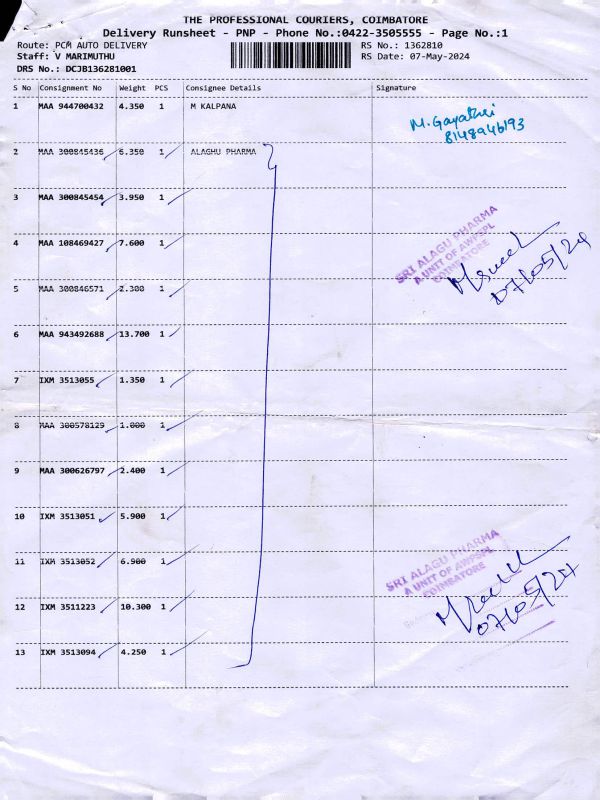 THE PROFESSIONAL COURIERS, COIMBATORE
Delivery Runsheet - PNP - Phone No.:0422-3505555 - Page No.:1
Route: PCM AUTO DELIVERY RS No.: 1362810
Staff: V MARIMUTHU RS Date: 07-May-2024
DRS No.: DCJB136281001
S No Consignment No Weight PCS Consignee Details Signature
1 MAA 944700432 4.350 1 M KALPANA
M. Gayathri
8148946193
2 MAA 300845436 6.350 1 ALAGHU PHARMA
3 MAA 300845454 3.950 1
SRI ALAGU PHARMA
A UNIT OF AWPSPL
COIMBATORE
07/05/24
4 MAA 108469427 7.600 1
5 MAA 300846571 2.300 1
6 MAA 943492688 13.700 1
7 IXM 3513055 1.350 1
8 MAA 300578129 1.000 1
9 MAA 300626797 2.400 1
10 IXM 3513051 5.900 1
11 IXM 3513052 6.900 1
SRI ALAGU PHARMA
A UNIT OF AWPSPL
COIMBATORE
07/05/24
12 IXM 3511223 10.300 1
13 IXM 3513094 4.250 1